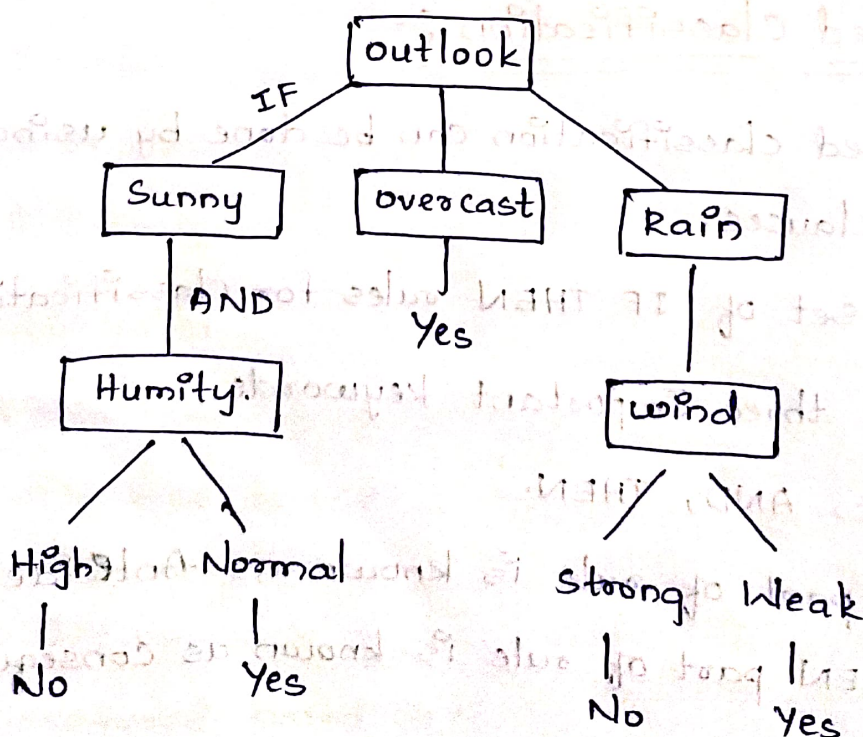 outlook
IF
Sunny overcast Rain
AND
Yes
Humity. wind
High Normal Strong Weak
No Yes No Yes